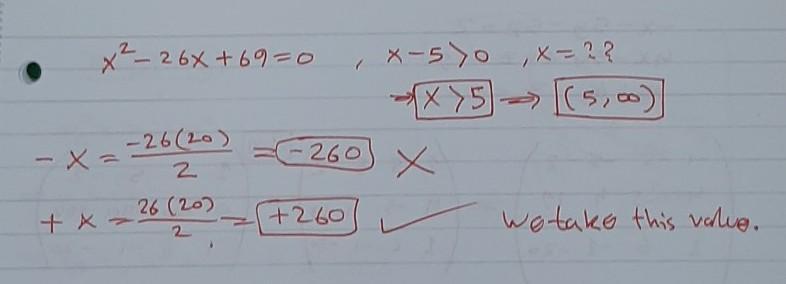 x² - 26x + 69 = 0 , x - 5 > 0 , x = ??
→ x > 5 → (5, ∞)
- x = -26(20)/2 = -260 X
+ x = 26(20)/2 = +260 ✓ we take this value.